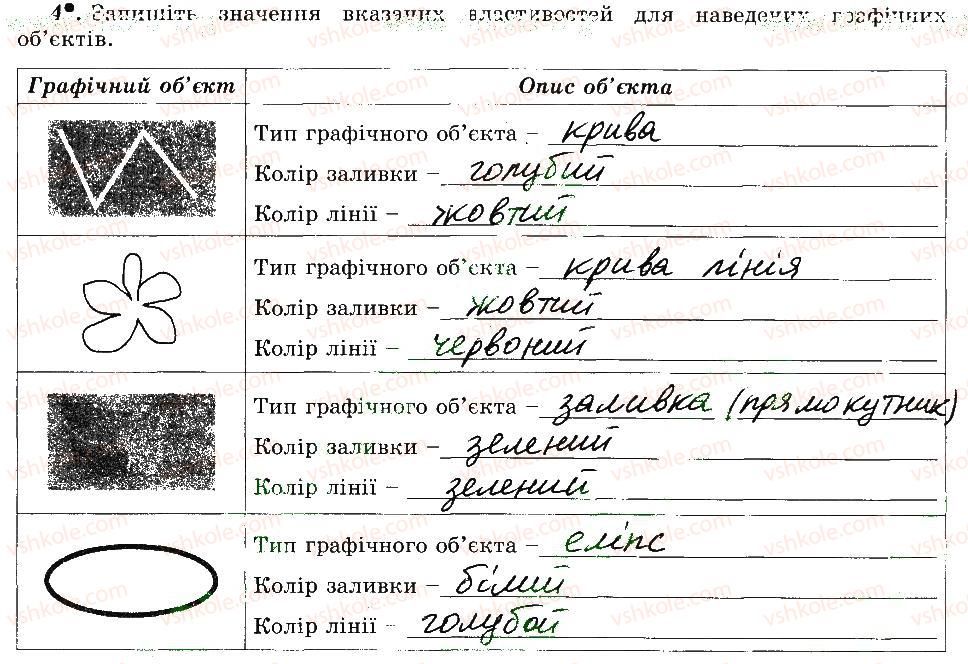 4•. Запишіть значення вказаних властивостей для наведених графічних
об'єктів.
Графічний об'єкт
Опис об'єкта
Тип графічного об'єкта – крива
Колір заливки – голубий
Колір лінії – жовтий
Тип графічного об'єкта – крива лінія
Колір заливки – жовтий
Колір лінії – червоний
Тип графічного об'єкта – заливка (прямокутник)
Колір заливки – зелений
Колір лінії – зелений
Тип графічного об'єкта – еліпс
Колір заливки – білий
Колір лінії – голубой